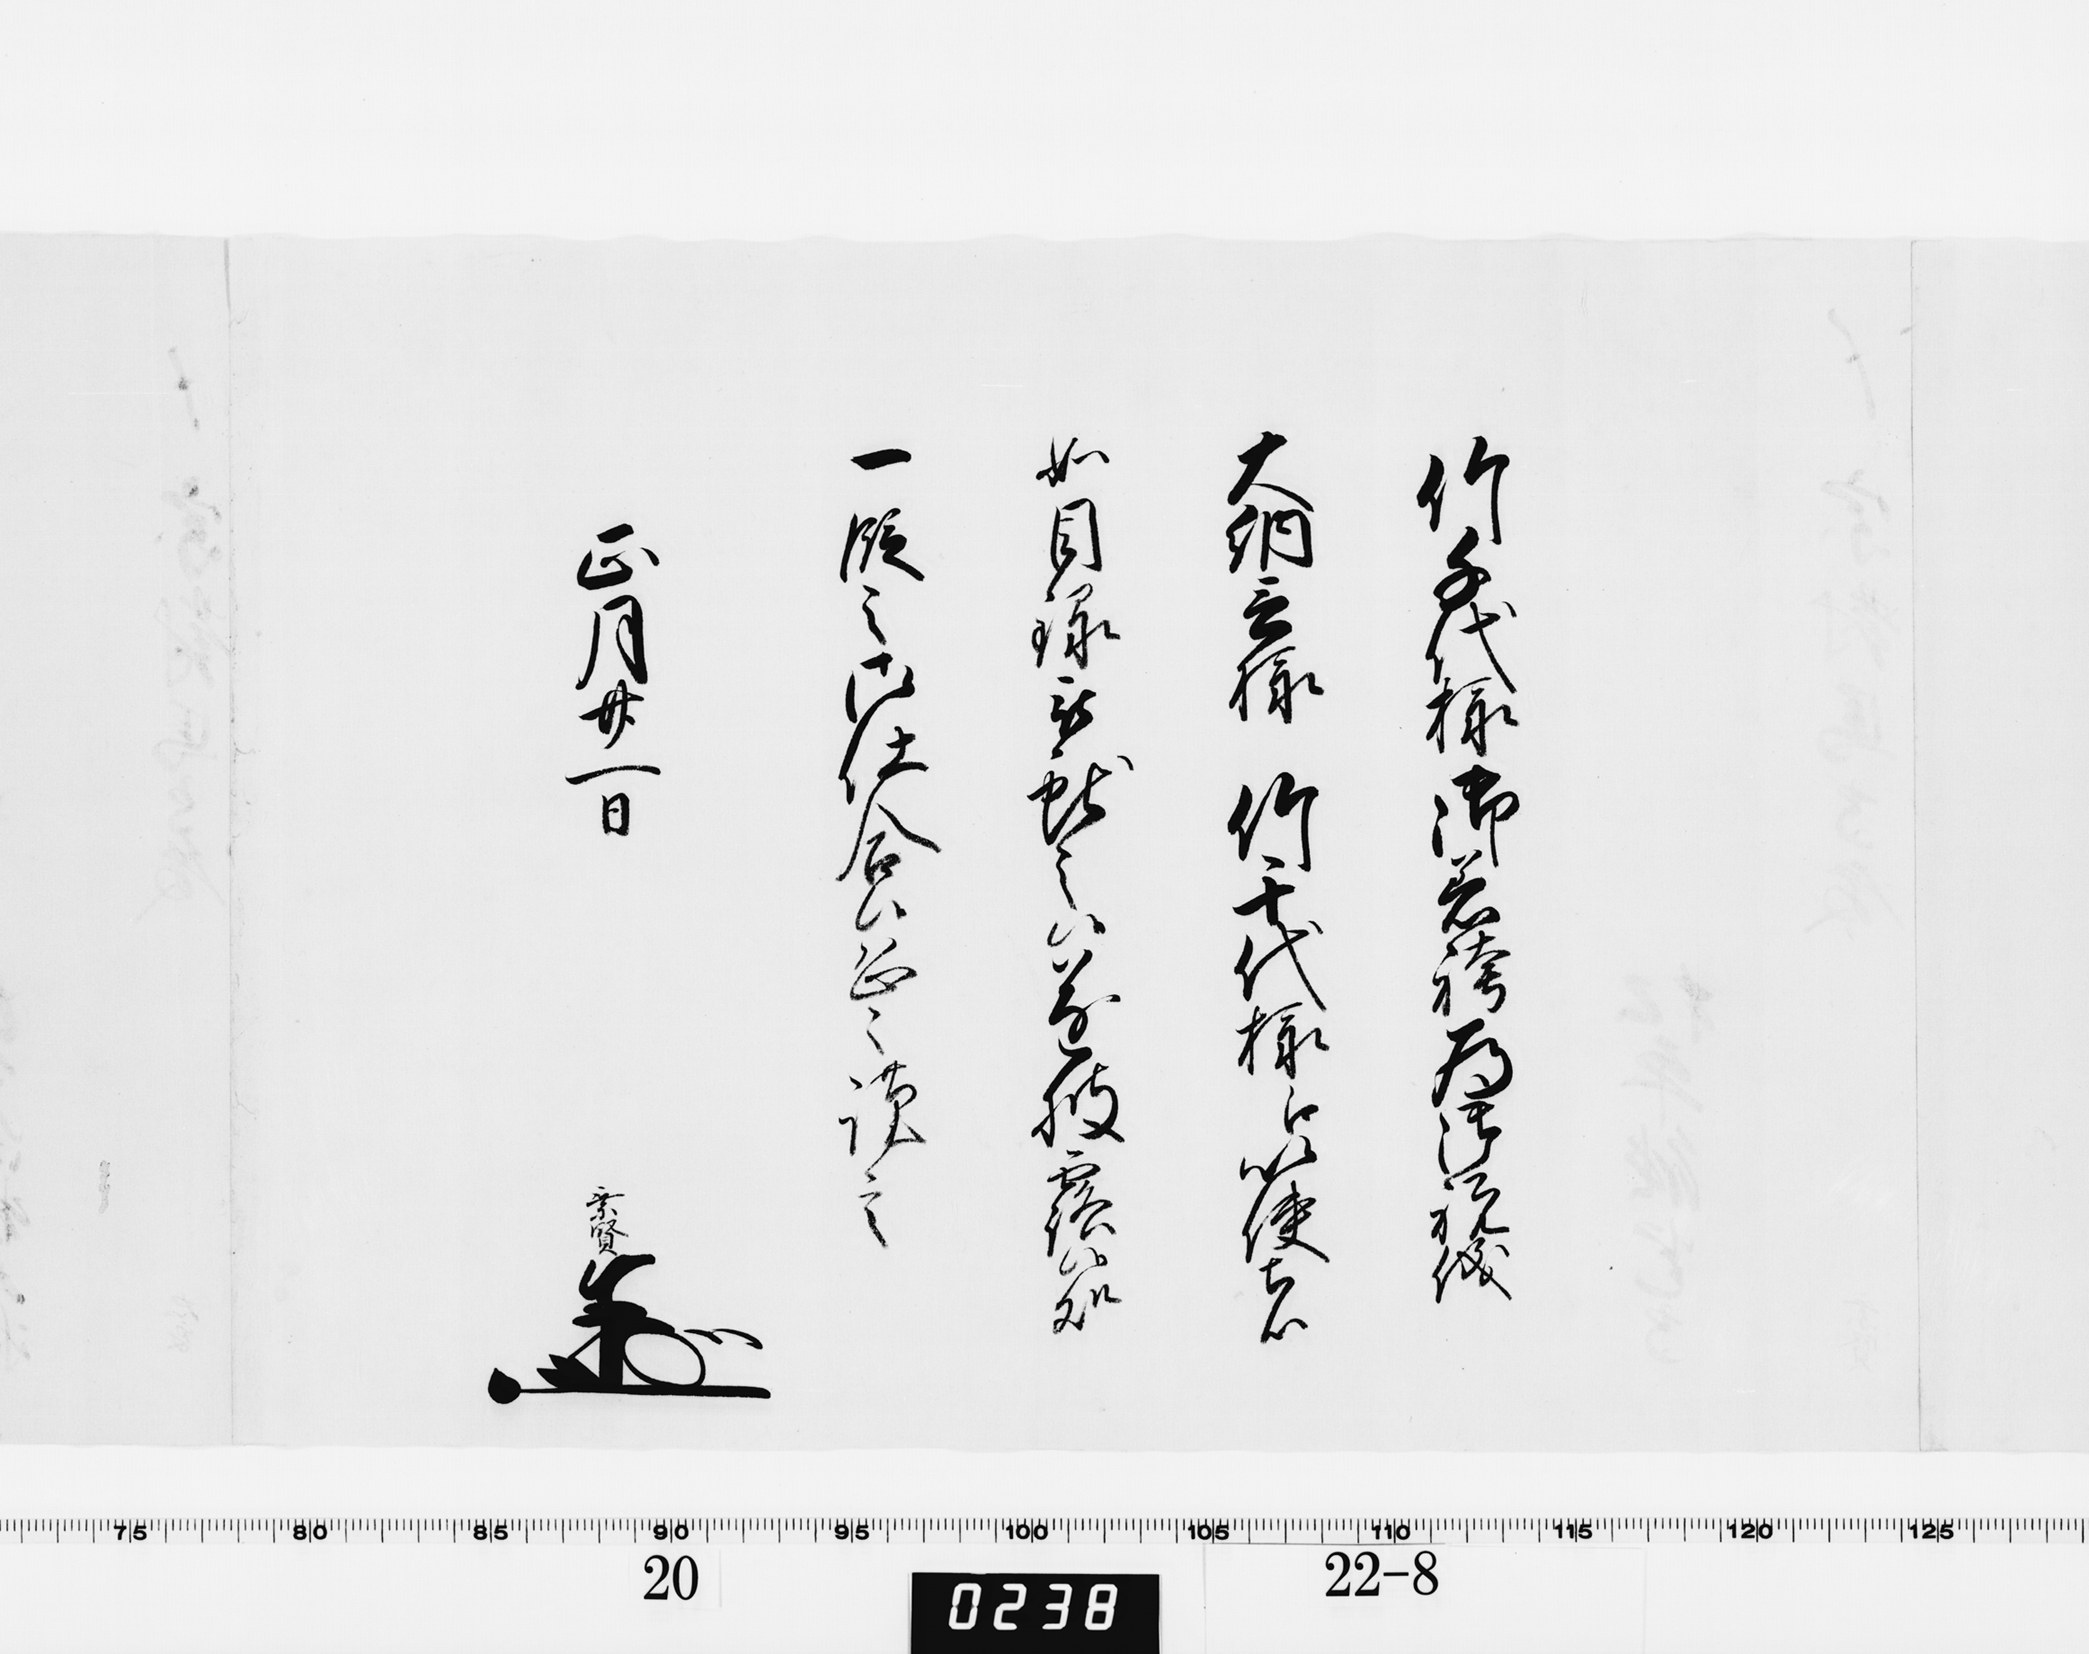 竹千代様御着袴為御祝儀
大納言様 竹千代様江以使者
如目録被献之候遂披露候処
一段之御仕合候恐々謹言
正月廿一日
宗賢
75 80 85 90 95 100 105 110 115 120 125
20 0238 22-8